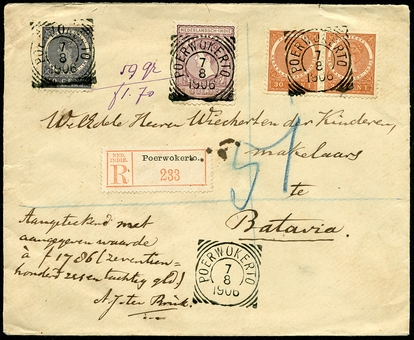 POERWOKERTO
7
8
1906
NEDERLANDSCH-INDIE
POERWOKERTO
7
8
1906
POERWOKERTO
7
8
1906
30 CENT
59 gr
f 1.70
WelEdele Heeren Wiechert en der Kinderen,
makelaars
te
Batavia.
51
NED.
INDIE.
R
Poerwokerto.
233
Aangeteekend met
aangegeven waarde
à f 1786 (zeventien=
honderd zes en tachtig gld)
POERWOKERTO
7
8
1906